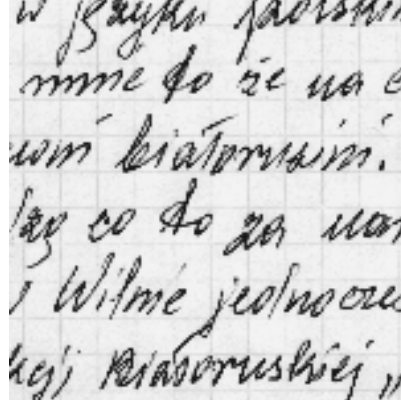 w języku polskim
mnie to że na
białorusini.
co to za
Wilnie jednocześ
kcji Białoruskiej „